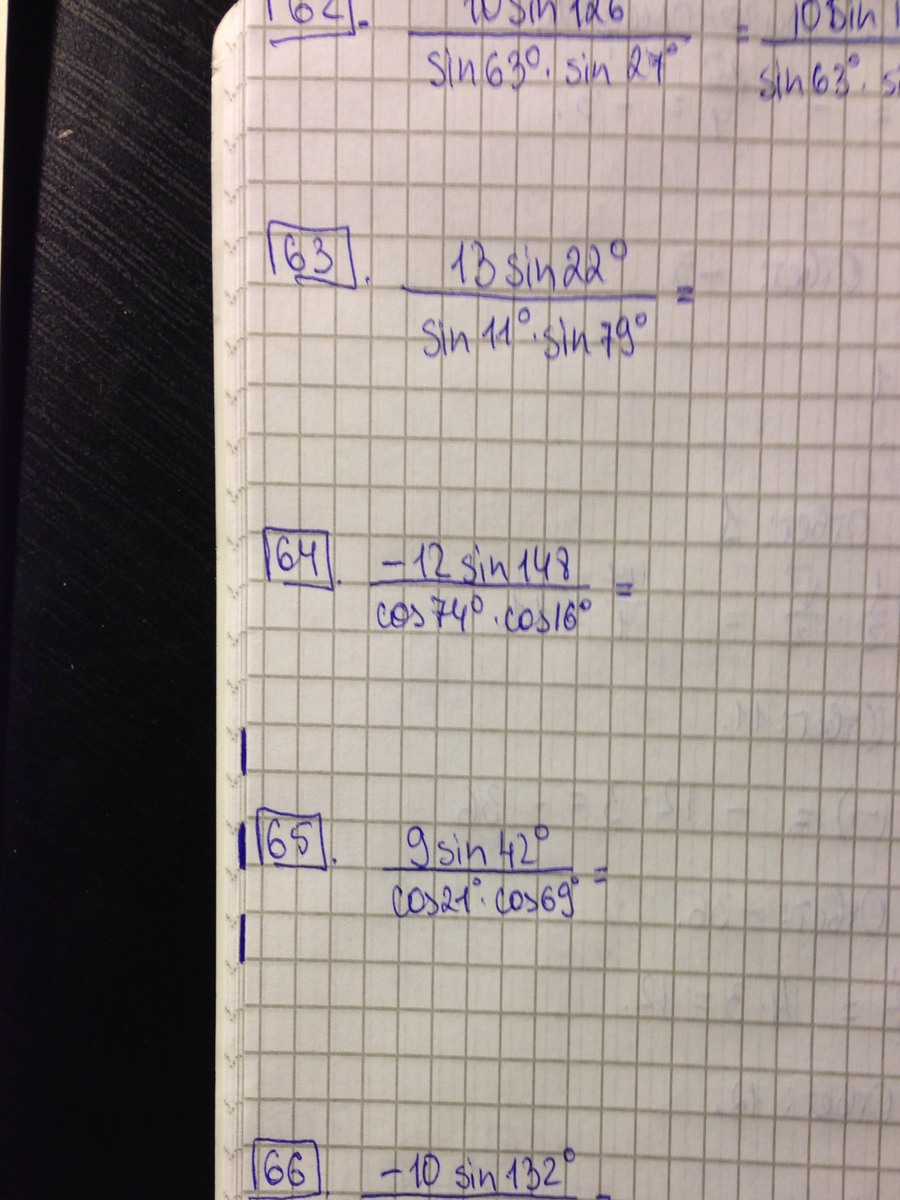 62. 10 sin 126 / sin 63° · sin 27° = 10 sin / sin 63° ·
63. 13 sin 22° / sin 11° · sin 79° =
64. -12 sin 148 / cos 74° · cos 16° =
65. 9 sin 42° / cos 21° · cos 69° =
66. -10 sin 132°